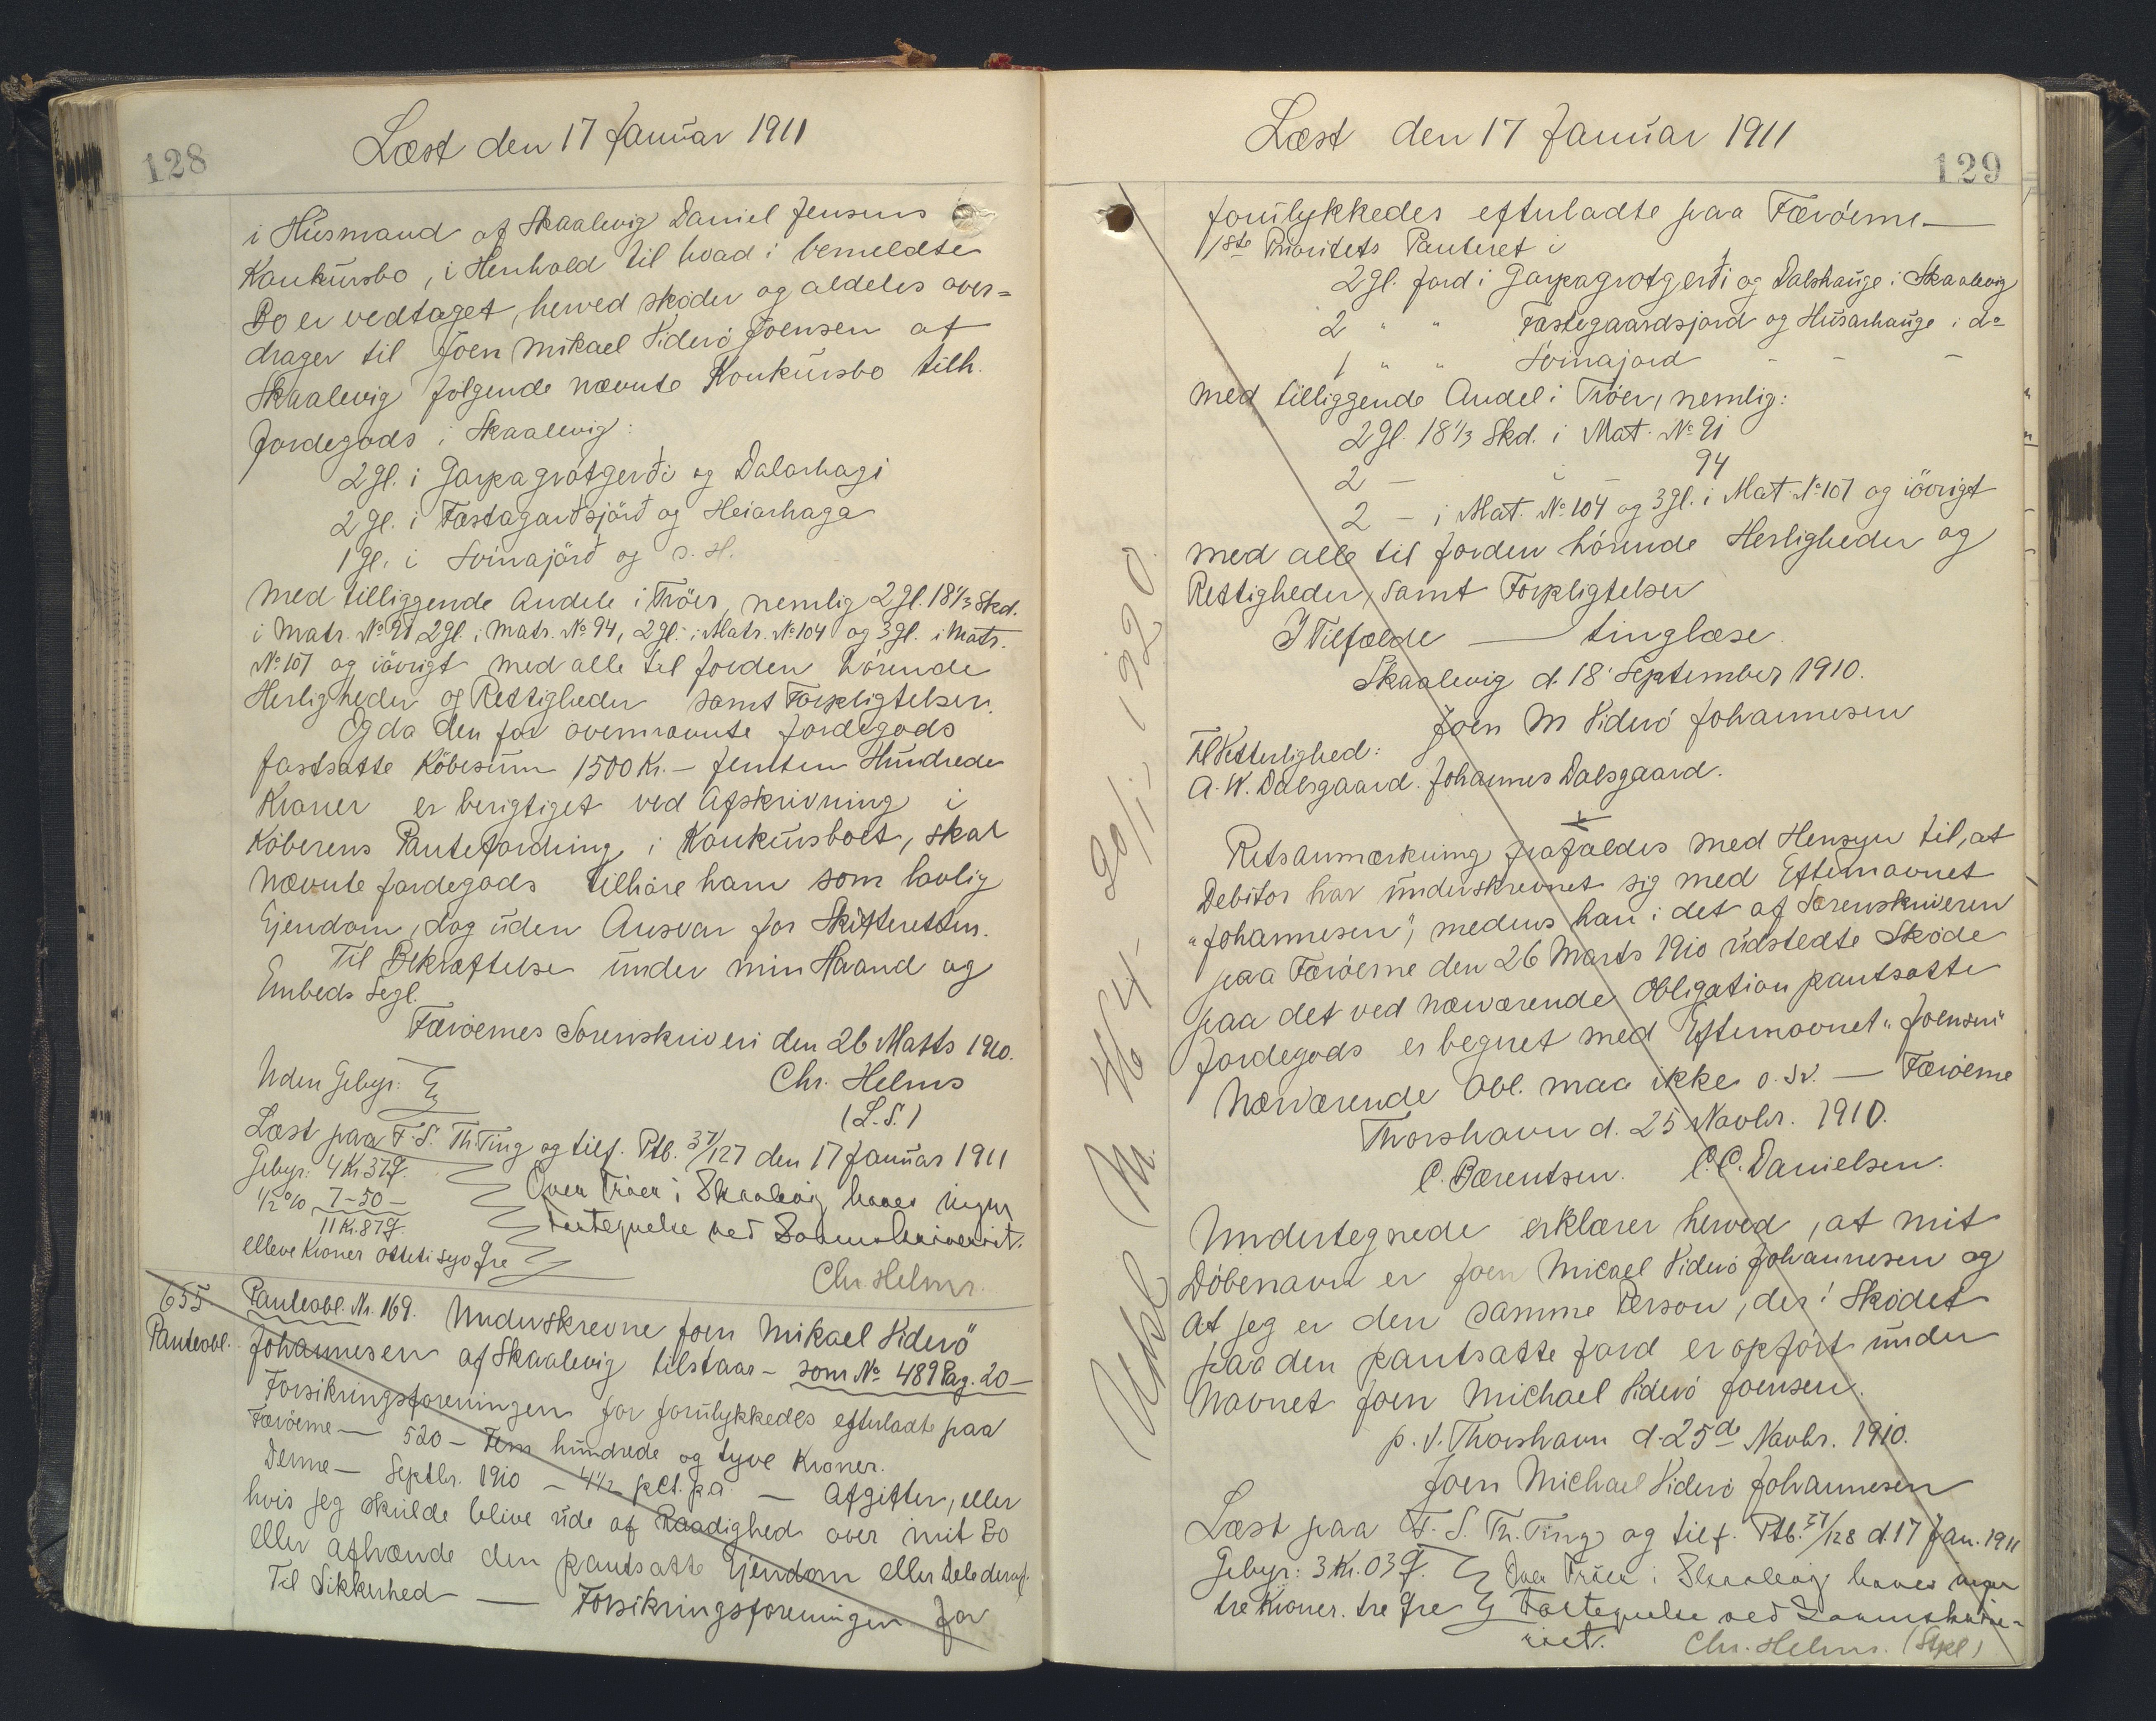 128
Læst den 17 Januar 1911
i Husmand af Skaalevig Daniel Jensens
Konkursbo, i Henhold til hvad i bemeldte
Bo er vedtaget, herved skøder og aldeles over=
drager til Joen Mikael Viderö Joensen af
Skaalevig følgende nævnte Konkursbo tilh.
Jordegods i Skaalevig:
2 gl. i Garpagrótgerði og Dalarhagi
2 gl. i Fæstagarðsjörð og Heiarhaga
1 gl. i Svinajörð og s. H.
med tilliggende Andele i Tröer, nemlig 2 gl. 18 1/3 Skd.
i Matr. № 91, 2 gl. i Matr. № 94, 2 gl. i Matr. № 104 og 3 gl. i Matr.
№ 107 og iövrigt med alle til Jorden hörende
Herligheder og Rettigheder samt Forpligtelser.
Og da den for ovennævnte Jordegods
fastsatte Købesum 1500 Kr. – Femten Hundrede
Kroner er berigtiget ved Afskrivning i
Köberens Pantefordring i Konkursboet, skal
nævnte Jordegods tilhöre ham som lovlig
Ejendom, dog uden Ansvar for Skifteretten.
Til Bekræftelse under min Haand og
Embeds Segl.
Færöernes Sorenskriveri den 26 Marts 1910.
Uden Gebyr:
Chr. Helms
(L.S.)
Læst paa F. S. Th. Ting og tilf. Ptb. 37/127 den 17 Januar 1911
Gebyr: 4 Kr 37 Ø.
1/2 % 7 – 50 –
11 Kr. 87 Ø.
elleve Kroner otteti syv Øre
Over Tröer i Skaalevig haves ingen
Fortegnelse ved Sorenskriveriet.
Chr. Helms.
655.
Panteobl.
Panteobl. Nr. 169. Underskrevne Joen Mikael Viderö
Johannesen af Skaalevig tilstaar – som № 489 Pag. 20 –
Forsikringsforeningen for forulykkedes efterladte paa
Færöerne — 520 – Fem hundrede og tyve Kroner.
Denne – Septbr. 1910 – 4 1/2 pCt. p.a. — Afgifter, eller
hvis jeg skulde blive ude af Raadighed over mit Bo
eller afhænde den pantsatte Ejendom eller Dele deraf.
Til Sikkerhed — Forsikringsforeningen for
129
Læst den 17 Januar 1911
forulykkedes efterladte paa Færöerne —
1ste Prioritets Panteret i
2 gl. Jord i Garpagrotgerði og Dalshauge i Skaalevig
2 " " Fæstegaardsjord og Husarhauge i do
1 " " Svinajord - - -
med tilliggende Andel i Tröer, nemlig:
2 gl. 18 1/3 Skd. i Mat. № 91
2 – i – 94
2 – i Mat. № 104 og 3 gl. i Mat. № 107 og iövrigt
med alle til Jorden hörende Herligheder og
Rettigheder, samt Forpligtelser
I Tilfælde — tinglæse.
Skaalevig d. 18' September 1910.
Joen M Viderö Johannesen
Til Vitterlighed:
A. W. Dalsgaard. Johannes Dalsgaard.
Retsanmærkning frafaldes med Hensyn til, at
Debitor har underskrevnet sig med Efternavnet
"Johannesen", medens han i det af Sorenskriveren
paa Færöerne den 26 Marts 1910 udstedte Sköde
paa det ved nærværende Obligation pantsatte
Jordegods er begnet med Efternavnet "Joensen"
Nærværende Obl. maa ikke o. s. v. — Færöerne
Thorshavn d. 25 Novbr. 1910.
C. Bærentsen. C. C. Danielsen.
Undertegnede erklærer herved, at mit
Döbenavn er Joen Micael Viderö Johannesen og
at jeg er den samme Person, der i Sködet
paa den pantsatte Jord er opfört under
Navnet Joen Michael Viderö Joensen.
p. t. Thorshavn d. 25de Novbr. 1910.
Joen Michael Viderö Johannesen
Læst paa F. S. Th. Ting og tilf. Ptb. 37/128 d. 17 Jan. 1911
Gebyr: 3 Kr. 03 Ø.
tre Kroner. tre Øre
Over Tröer i Skaalevig haves ingen
Fortegnelse ved Sorenskrive-
riet.
Chr. Helms. (Stpl)
20/1, 1920.